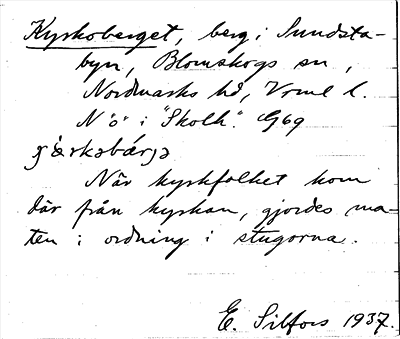 Kyrkoberget, berg i Sundsta-
byn, Blomskogs sn,
Nordmarks hd, Vrml l.
N "ö" i "Skolh". G69
När kyrkfolket kom
där från kyrkan, gjordes ma-
ten i ordning i stugorna.
E. Silfors 1937.